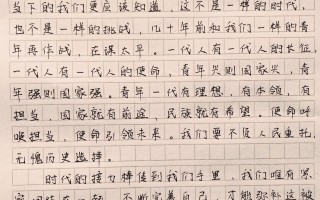 当下的我们更应该知道，这不是一样的时代，
也不是一样的挑战，几十年前和我们一样的青
年再作战，在谋太平。一代人有一代人的长征，
一代人有一代人的使命，青年兴则国家兴，青
年强则国家强。青年一代有理想，有本领，有
担当，国家就有前途，民族就有希望。使命呼
唤担当，使命引领未来。我们要不负人民重托，
无愧历史选择。
时代的接力棒传到我们手里，我们唯有